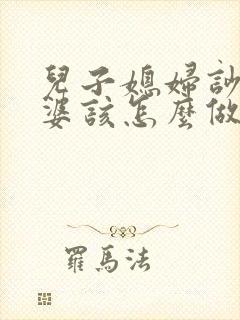 兒子媳婦
婆該怎麼做
羅馬法